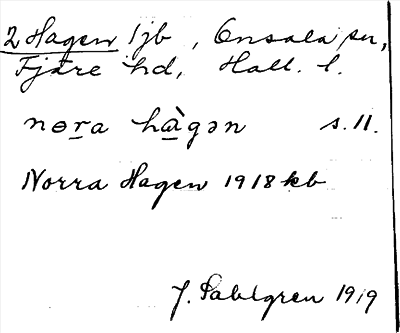 2 Hagen 1jb, Onsala sn,
Fjäre hd, Hall. l.
nɵra hàgən s. 11.
Norra Hagen 1918 kb
J. Sahlgren 1919